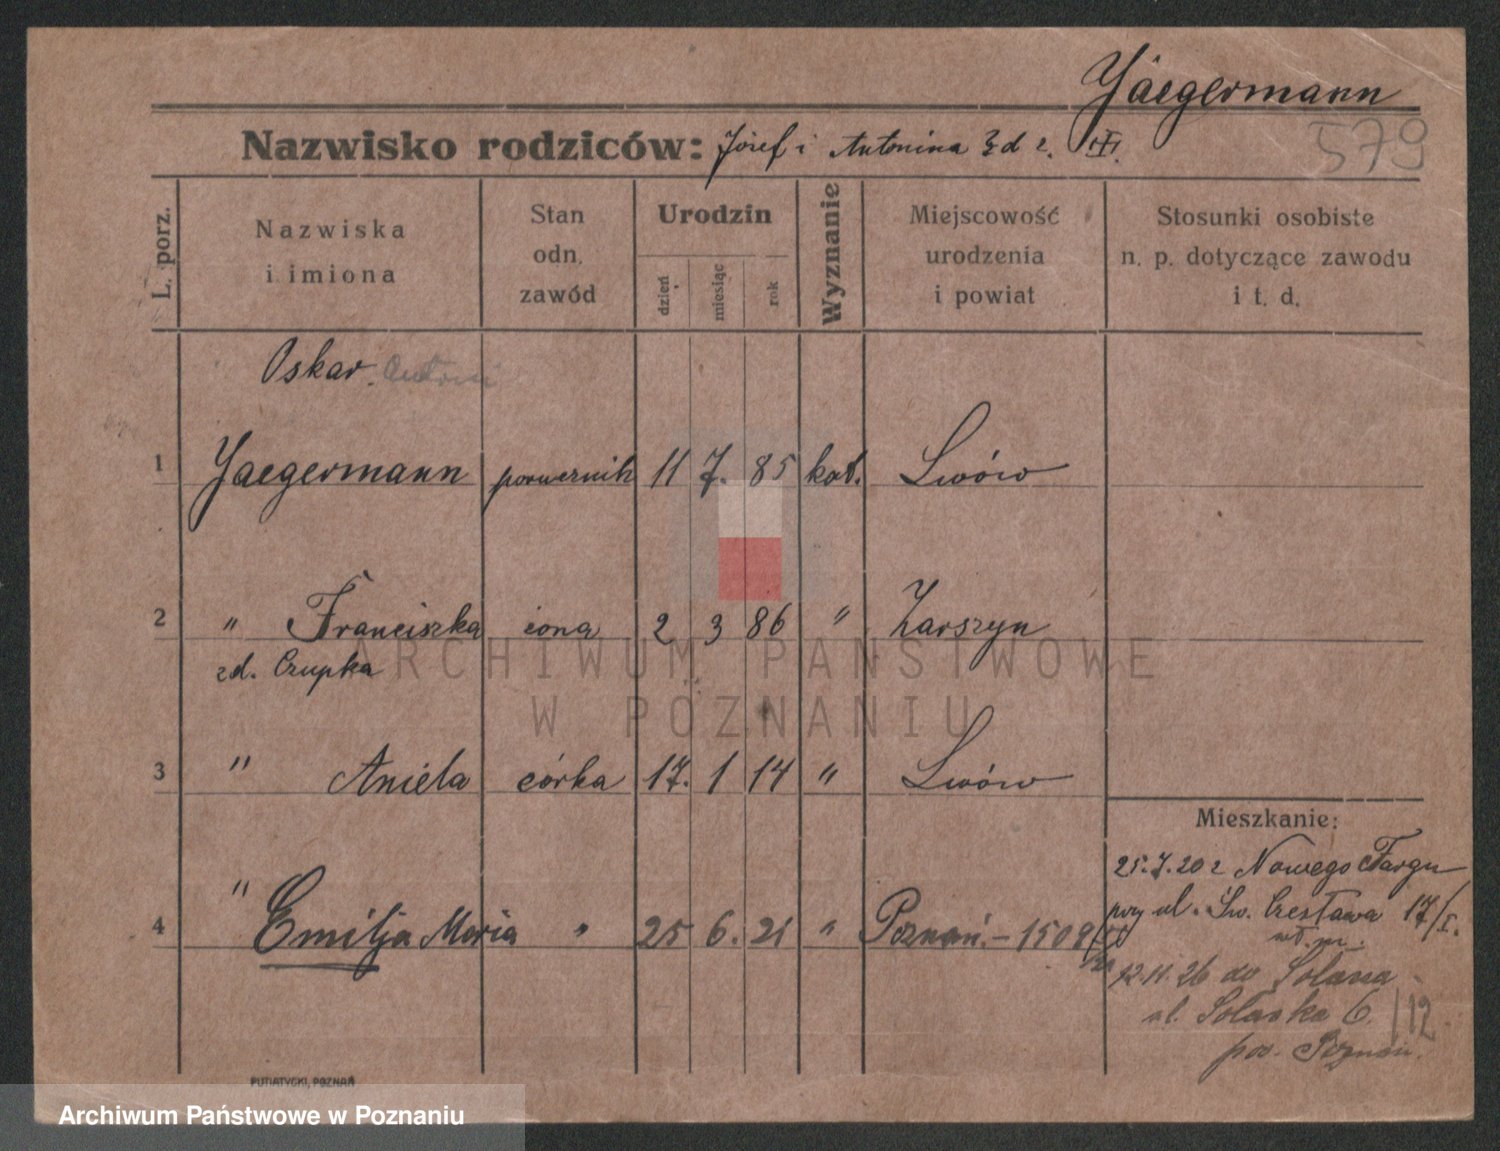 Yaegermann
579
Nazwisko rodziców: Józef i Antonina
L. porz.
Nazwiska i imiona
Stan odn. zawód
Urodzin
dzień
miesiąc
rok
Wyznanie
Miejscowość urodzenia i powiat
Stosunki osobiste n. p. dotyczące zawodu i t. d.
Oskar. Antoni
1 Yaegermann porucznik 11 7. 85 kat. Lwów
2 " Franciszka żona 2 3 86 " Zarszyn
zd. Czupka
3 " Aniela córka 17. 1 14 " Lwów
Mieszkanie:
25.7.20 z Nowego Targu
przy ul. Św. Czesława 17/I.
4 " Emilja Maria " 25 6. 21 " Poznań. - 1509
12.11.26 do Solacza
ul. Solacka 6. /12
pow. Poznań.
PUTIATYCKI, POZNAŃ
ARCHIWUM PAŃSTWOWE
W POZNANIU
Archiwum Państwowe w Poznaniu